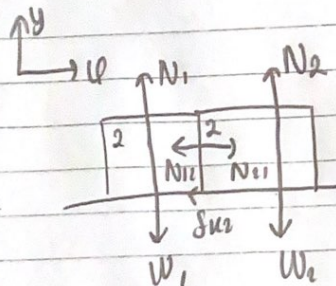 y
φ
N₁
N₂
2
2
N₁₂
N₂₁
fk₂
W₁
W₂